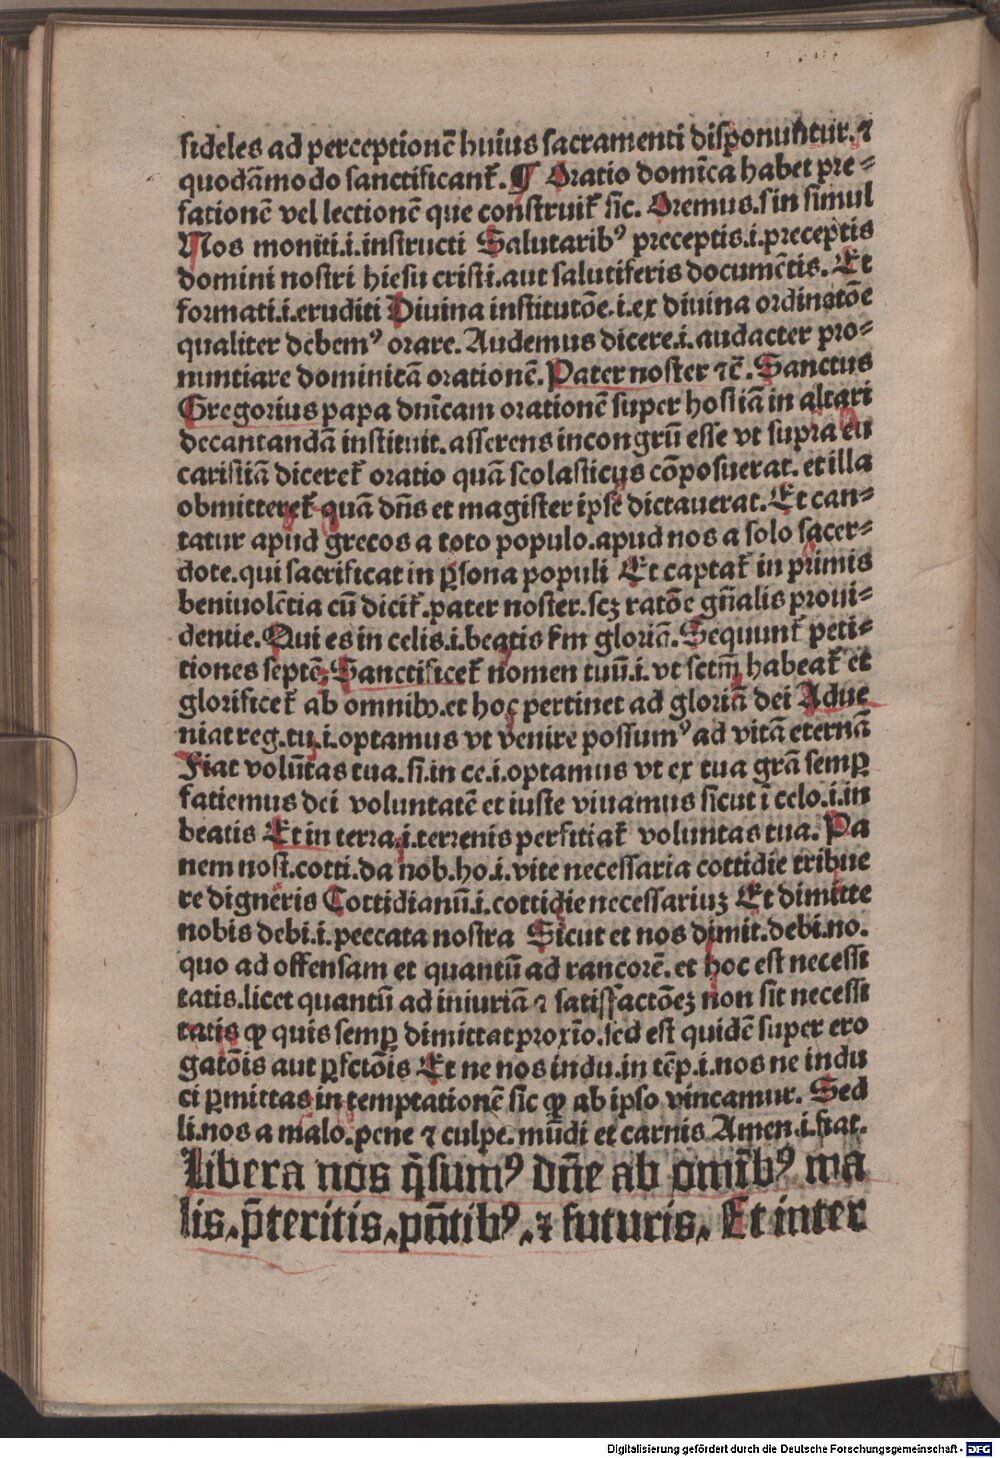 fideles ad perceptionē huius sacramenti disponuntur. ⁊
quodāmodo sanctificant᷑. ¶ Oratio domīca habet pre⸗
fationē vel lectionē que construit᷑ sic. Oremus. s in simul
Nos moniti .i. instructi Salutarib⁹ preceptis .i. preceptis
domini nostri hiesu cristi. aut salutiferis documētis. Et
formati .i. eruditi Diuina institutōe .i. ex diuina ordinatōe
qualiter debem⁹ orare. Audemus dicere .i. audacter pro⸗
nuntiare dominicā orationē. Pater noster ⁊c̄. Sanctus
Gregorius papa dnīcam orationē super hostiā in altari
decantandā instituit. asserens incongrū esse vt supra eu
caristiā diceret᷑ oratio quā scolasticus cōposuerat. et illa
obmitteret᷑ quā dn̄s et magister ipse dictauerat. Et can⸗
tatur apud grecos a toto populo. apud nos a solo sacer⸗
dote. qui sacrificat in ꝑsona populi Et captat᷑ in primis
beniuolētia cū dicit᷑. pater noster. scꝫ ratōe gn̄alis proui⸗
dentie. Qui es in celis .i. beatis s̄m gloriā. Sequunt᷑ peti⸗
tiones septē. Sanctificet᷑ nomen tuū .i. vt sctm̄ habeat᷑ et
glorificet᷑ ab omnibꝰ. et hoc pertinet ad gloriā dei Adue
niat reg. tu. .i. optamus vt venire possum⁹ ad vitā eternā
Fiat volūtas tua. si. in ce .i. optamus vt ex tua grā semꝑ
fatiemus dei voluntatē et iuste viuamus sicut ī celo .i. in
beatis Et in terra .i. terrenis perfitiat᷑ voluntas tua. Pa
nem nost. cotti. da nob. ho .i. vite necessaria cottidie tribue
re digneris Cottidianū .i. cottidie necessariuꝫ Et dimitte
nobis debi .i. peccata nostra Sicut et nos dimit. debi. no.
quo ad offensam et quantū ad rancorē. et hoc est necessi
tatis. licet quantū ad iniuriā ⁊ satisfactōeꝫ non sit necessi
tatis ꝙ quis semꝑ dimittat proxīo. sed est quidē super ero
gatōis aut ꝑfctōis Et ne nos indu. in tēp. .i. nos ne indu
ci ꝑmittas in temptationē sic ꝙ ab ipso vincamur. Sed
li. nos a malo. pene ⁊ culpe. mūdi et carnis Amen .i. fiat.
Libera nos q̄sum⁹ dn̄e ab omīb⁹ ma
lis, p̄teritis, pn̄tib⁹, ⁊ futuris, Et inter
Digitalisierung gefördert durch die Deutsche Forschungsgemeinschaft - DFG